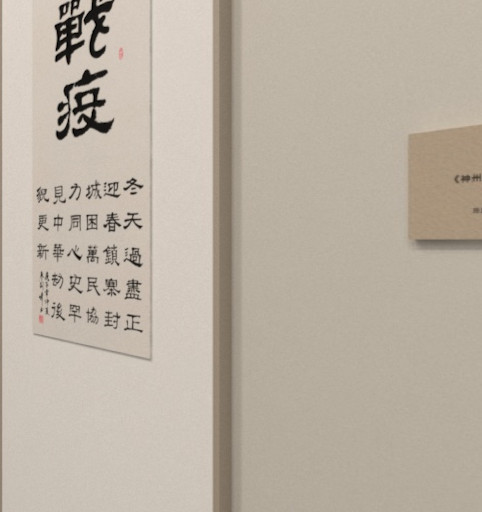 戰疫
冬天過盡正
迎春鎮寨封
城困萬民協
力同心史罕
見中華劫後
貌更新
《神州